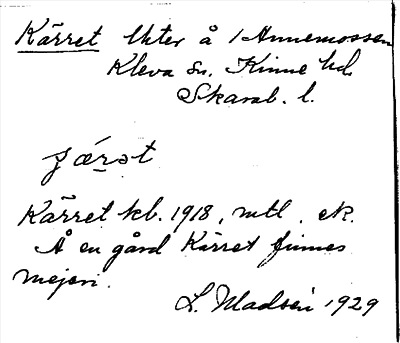 Kärret Utter å / Annemossen
Kleva Sn. Kinne hd.
Skarab. l.
Kärret kb. 1918, mtl. ek.
Å en gård Kärret finnes
mejeri.
L. Madsén 1929